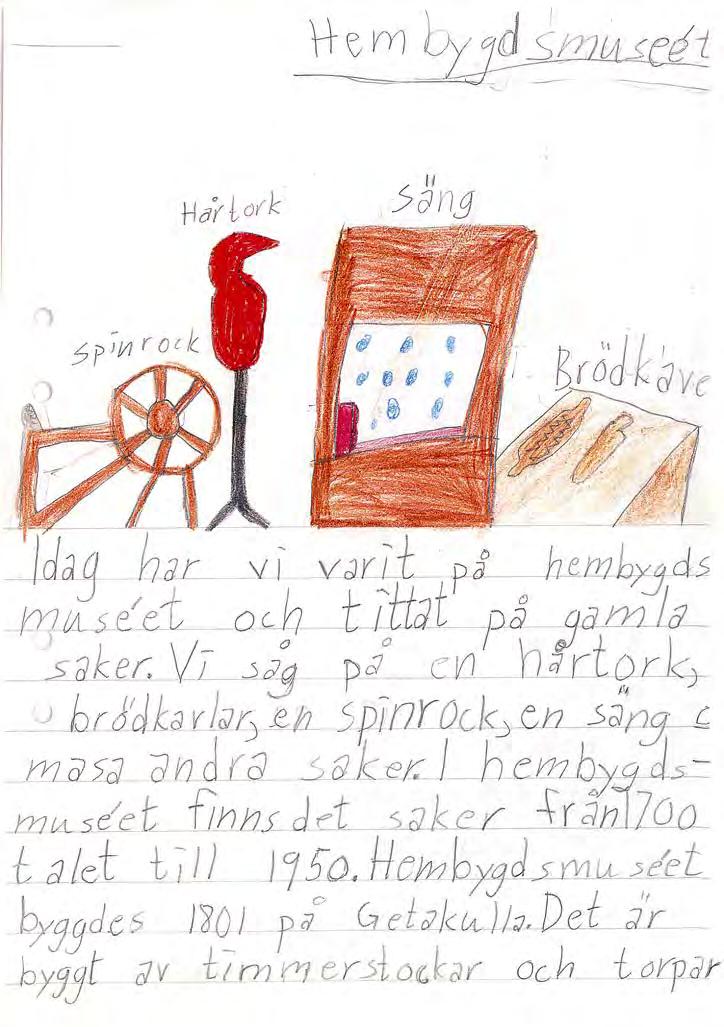 Hembygdsmuseét
Hårtork
Säng
Spinrock
Brödkäve
Idag har vi varit på hembygds
muséet och tittat på gamla
saker. Vi såg på en hårtork,
brödkavlar, en spinrock, en säng
masa andra saker. I hembygds-
muséet finns det saker från 1700
talet till 1950. Hembygdsmuséet
byggdes 1801 på Getakulla. Det är
byggt av timmerstockar och torpar